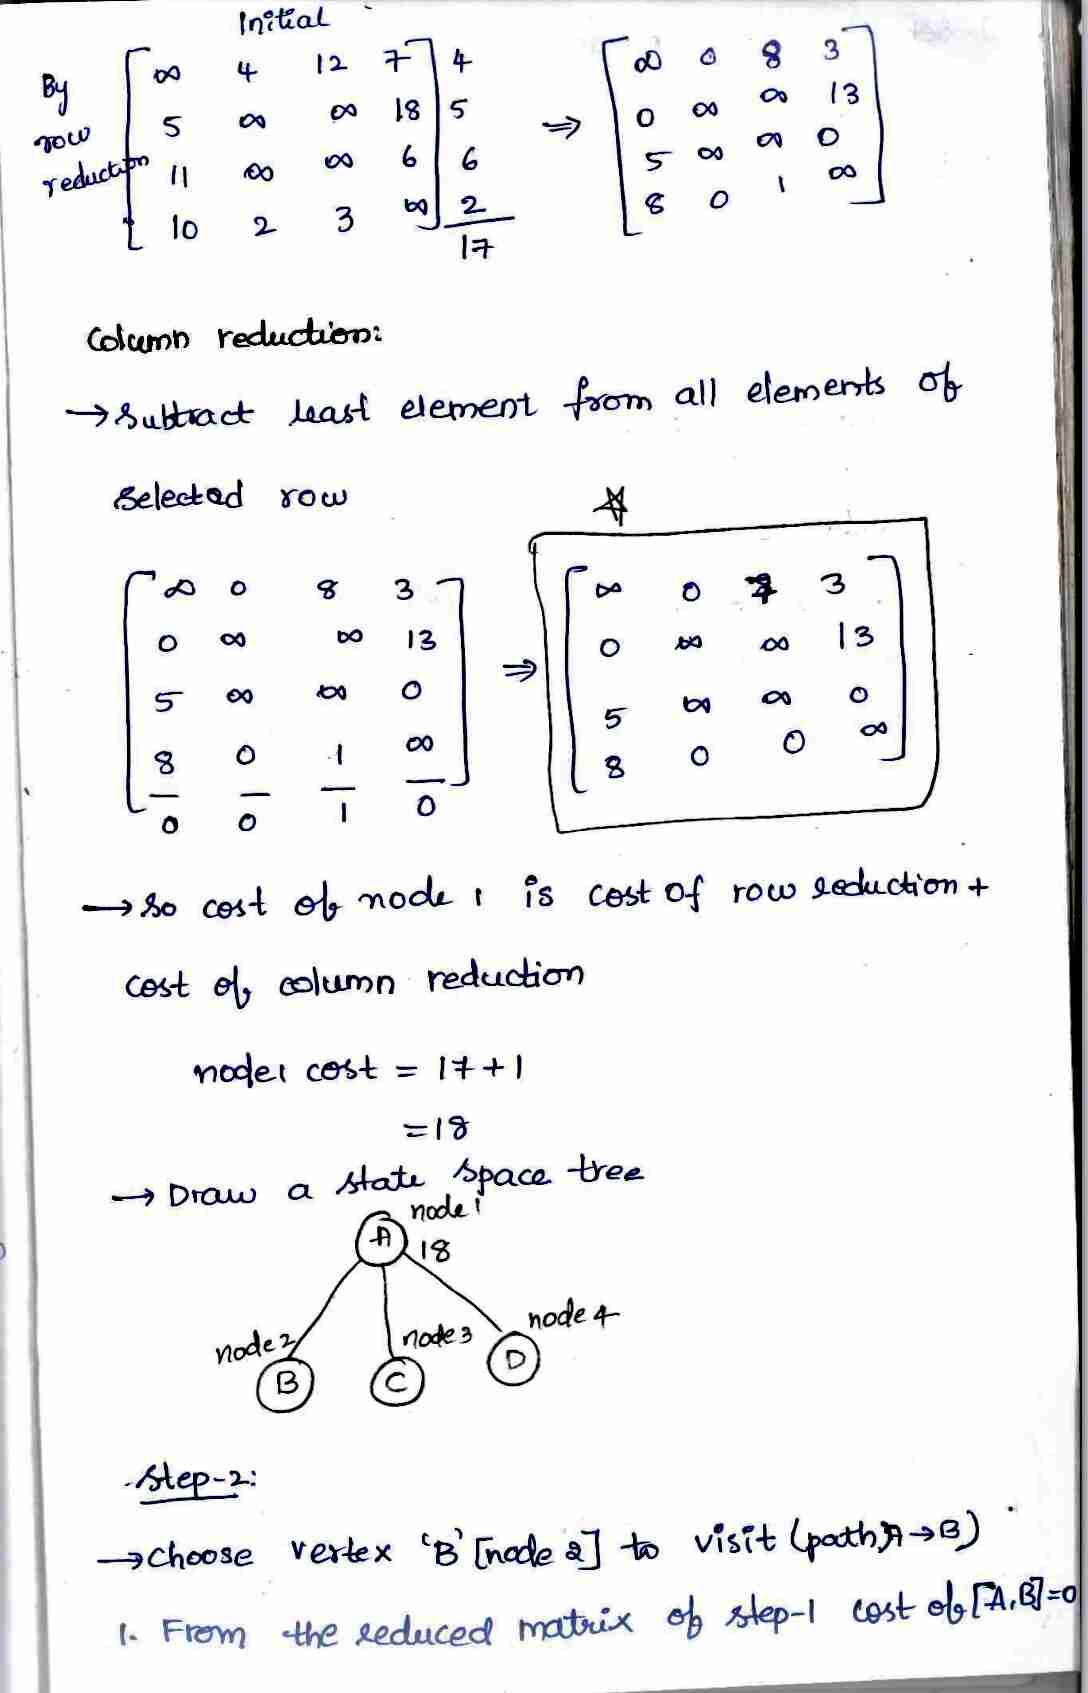 Initial
By
row
reduction
∞ 4 12 7 4
5 ∞ ∞ 18 5
11 ∞ ∞ 6 6
10 2 3 ∞ 2
17
⇒
∞ 0 8 3
0 ∞ ∞ 13
5 ∞ ∞ 0
8 0 1 ∞
Column reduction:
→ Subtract least element from all elements of
selected row
∞ 0 8 3
0 ∞ ∞ 13
5 ∞ ∞ 0
8 0 1 ∞
0 0 1 0
⇒
∞ 0 7 3
0 ∞ ∞ 13
5 ∞ ∞ 0
8 0 0 ∞
→ so cost of node 1 is cost of row reduction +
cost of column reduction
node1 cost = 17+1
=18
→ Draw a state space tree
node 1
A 18
node 2 node 3 node 4
B C D
Step-2:
→ choose vertex 'B' [node 2] to visit (path A→B)
1. From the reduced matrix of step-1 cost of [A,B]=0